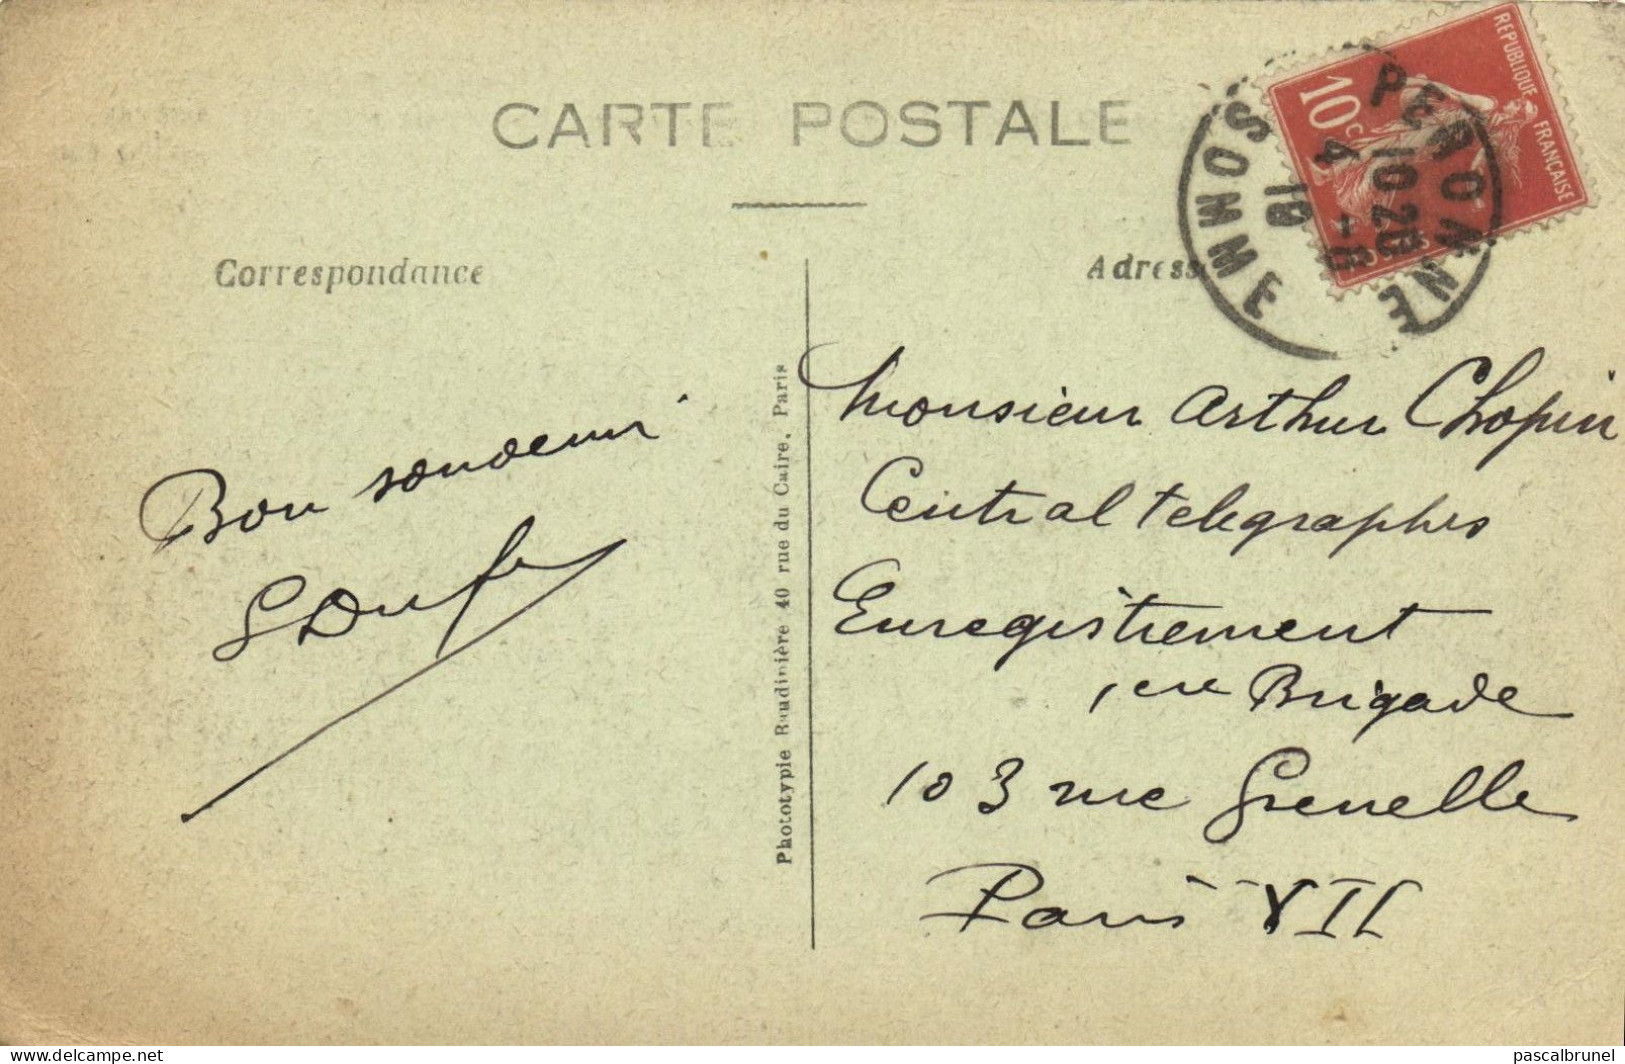 CARTE POSTALE
Correspondance
Adresse
REPUBLIQUE FRANÇAISE
10c
PERONNE
SOMME
10 20
4 - 8
19
Bon souvenir
Photótypie Baudinière 40 rue du Caire, Paris
Monsieur Arthur Chopin
Central telegraphes
Enregistrement
1ere Brigade
103 rue Grenelle
Paris VII
delcampe.net
pascalbrunel